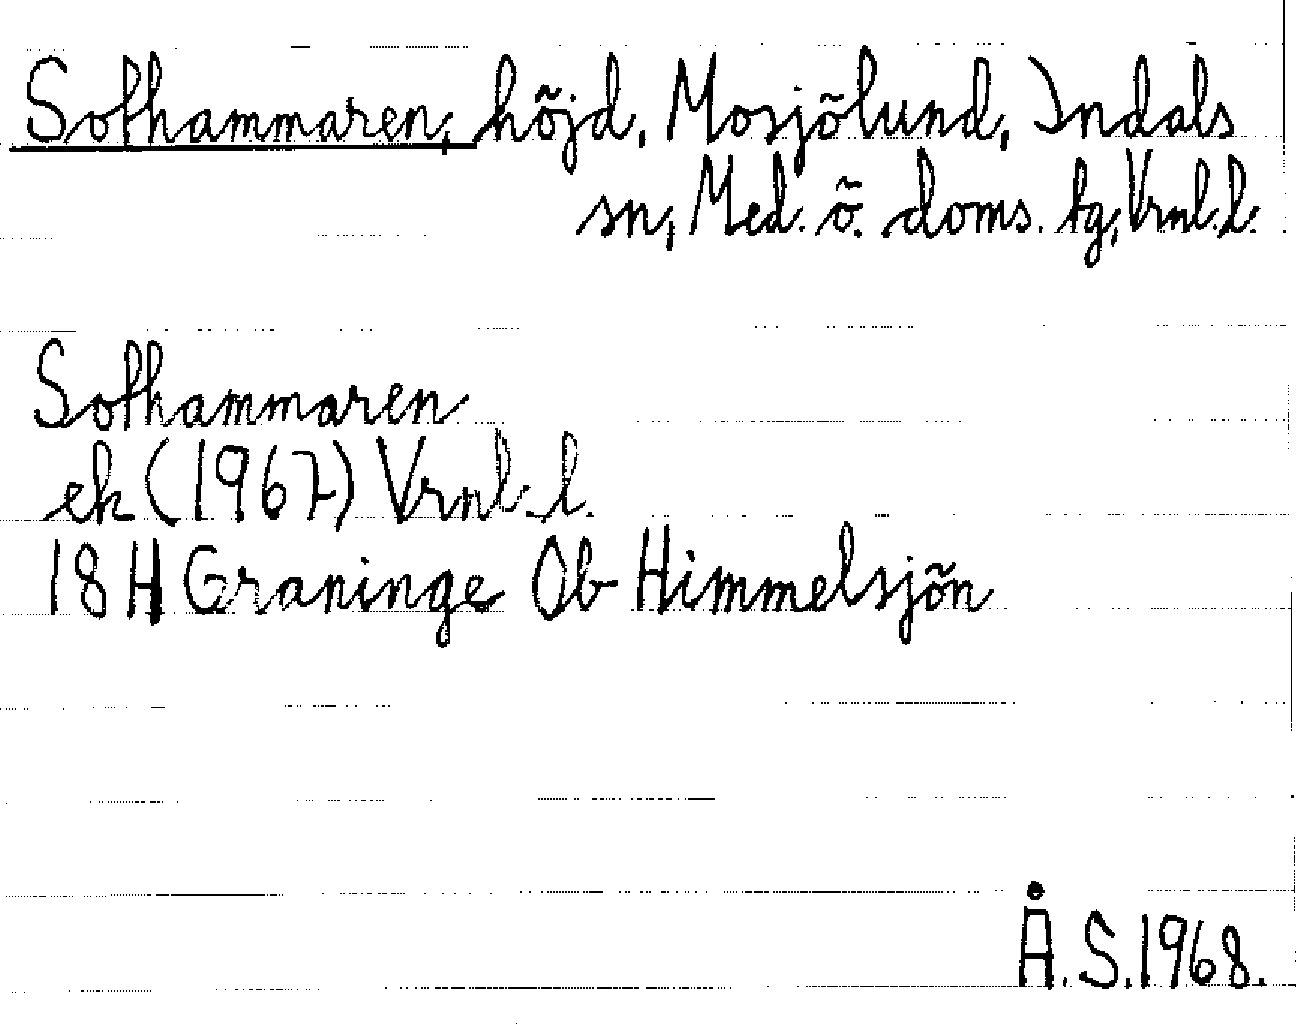 Sofhammaren, höjd, Mosjölund, Indals
sn, Med. ö. doms. tg, Vrnl. l.
Sofhammaren
ek (1967) Vrnl. l.
18 H Graninge Ob Himmelsjön
Å. S. 1968.